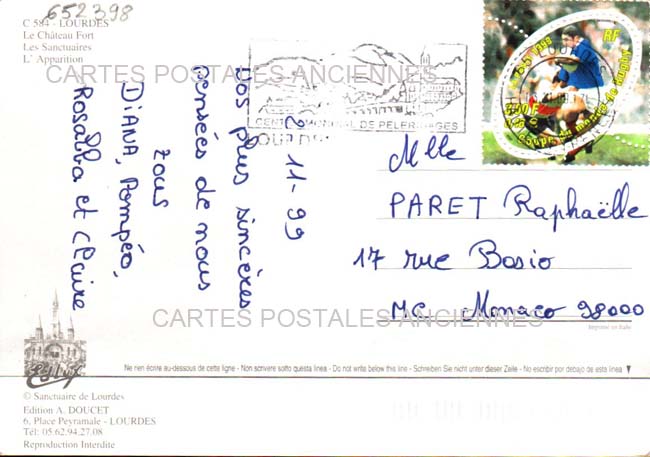 652398
C 584 - LOURDES
Le Château Fort
Les Sanctuaires
L' Apparition
CARTES POSTALES ANCIENNES
CENTRE MONDIAL DE PELERINAGES
RF
Coupe du monde de Rugby
2-11-99
Nos plus sincères
pensées de nous
tous
DiANA, Pompéo,
Rosalba et Claire
Mlle
PARET Raphaëlle
17 rue Bosio
MC Monaco 98000
CARTES POSTALES ANCIENNES
Imprimé en Italie
Ne rien écrire au-dessous de cette ligne - Non scrivere sotto questa linea - Do not write below this line - Schreiben Sie nicht unter dieser Zeile - No escribir por debajo de esta linea
© Sanctuaire de Lourdes
Edition A. DOUCET
6, Place Peyramale - LOURDES
Tél: 05.62.94.27.08
Reproduction Interdite